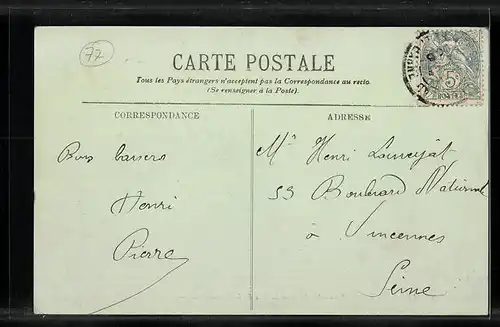 77
CARTE POSTALE
Tous les Pays étrangers n'acceptent pas la Correspondance au recto.
(Se renseigner à la Poste).
CORRESPONDANCE
ADRESSE
Bons baisers
Henri
Pierre
Mr Henri
53 Boulevard National
à Vincennes
Seine
5c